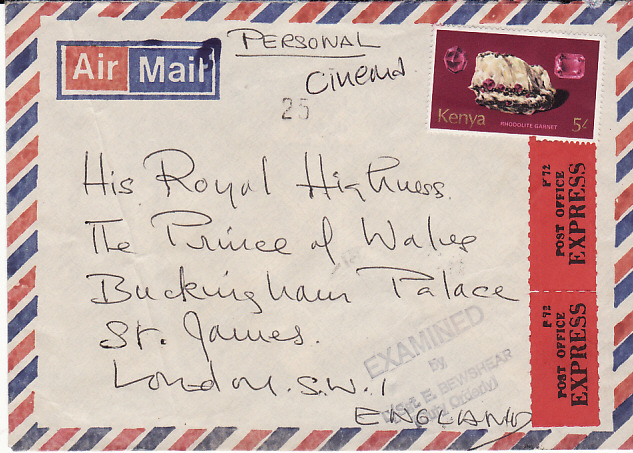 PERSONAL
Air Mail
Cinema
25
Kenya
RHODOLITE GARNET
5/-
His Royal Highness
The Prince of Wales
Buckingham Palace
St. James.
London. S.W.1
ENGLAND
P 72
POST OFFICE
EXPRESS
P 72
POST OFFICE
EXPRESS
EXAMINED
by
E. BEWSHEAR
Orderly)